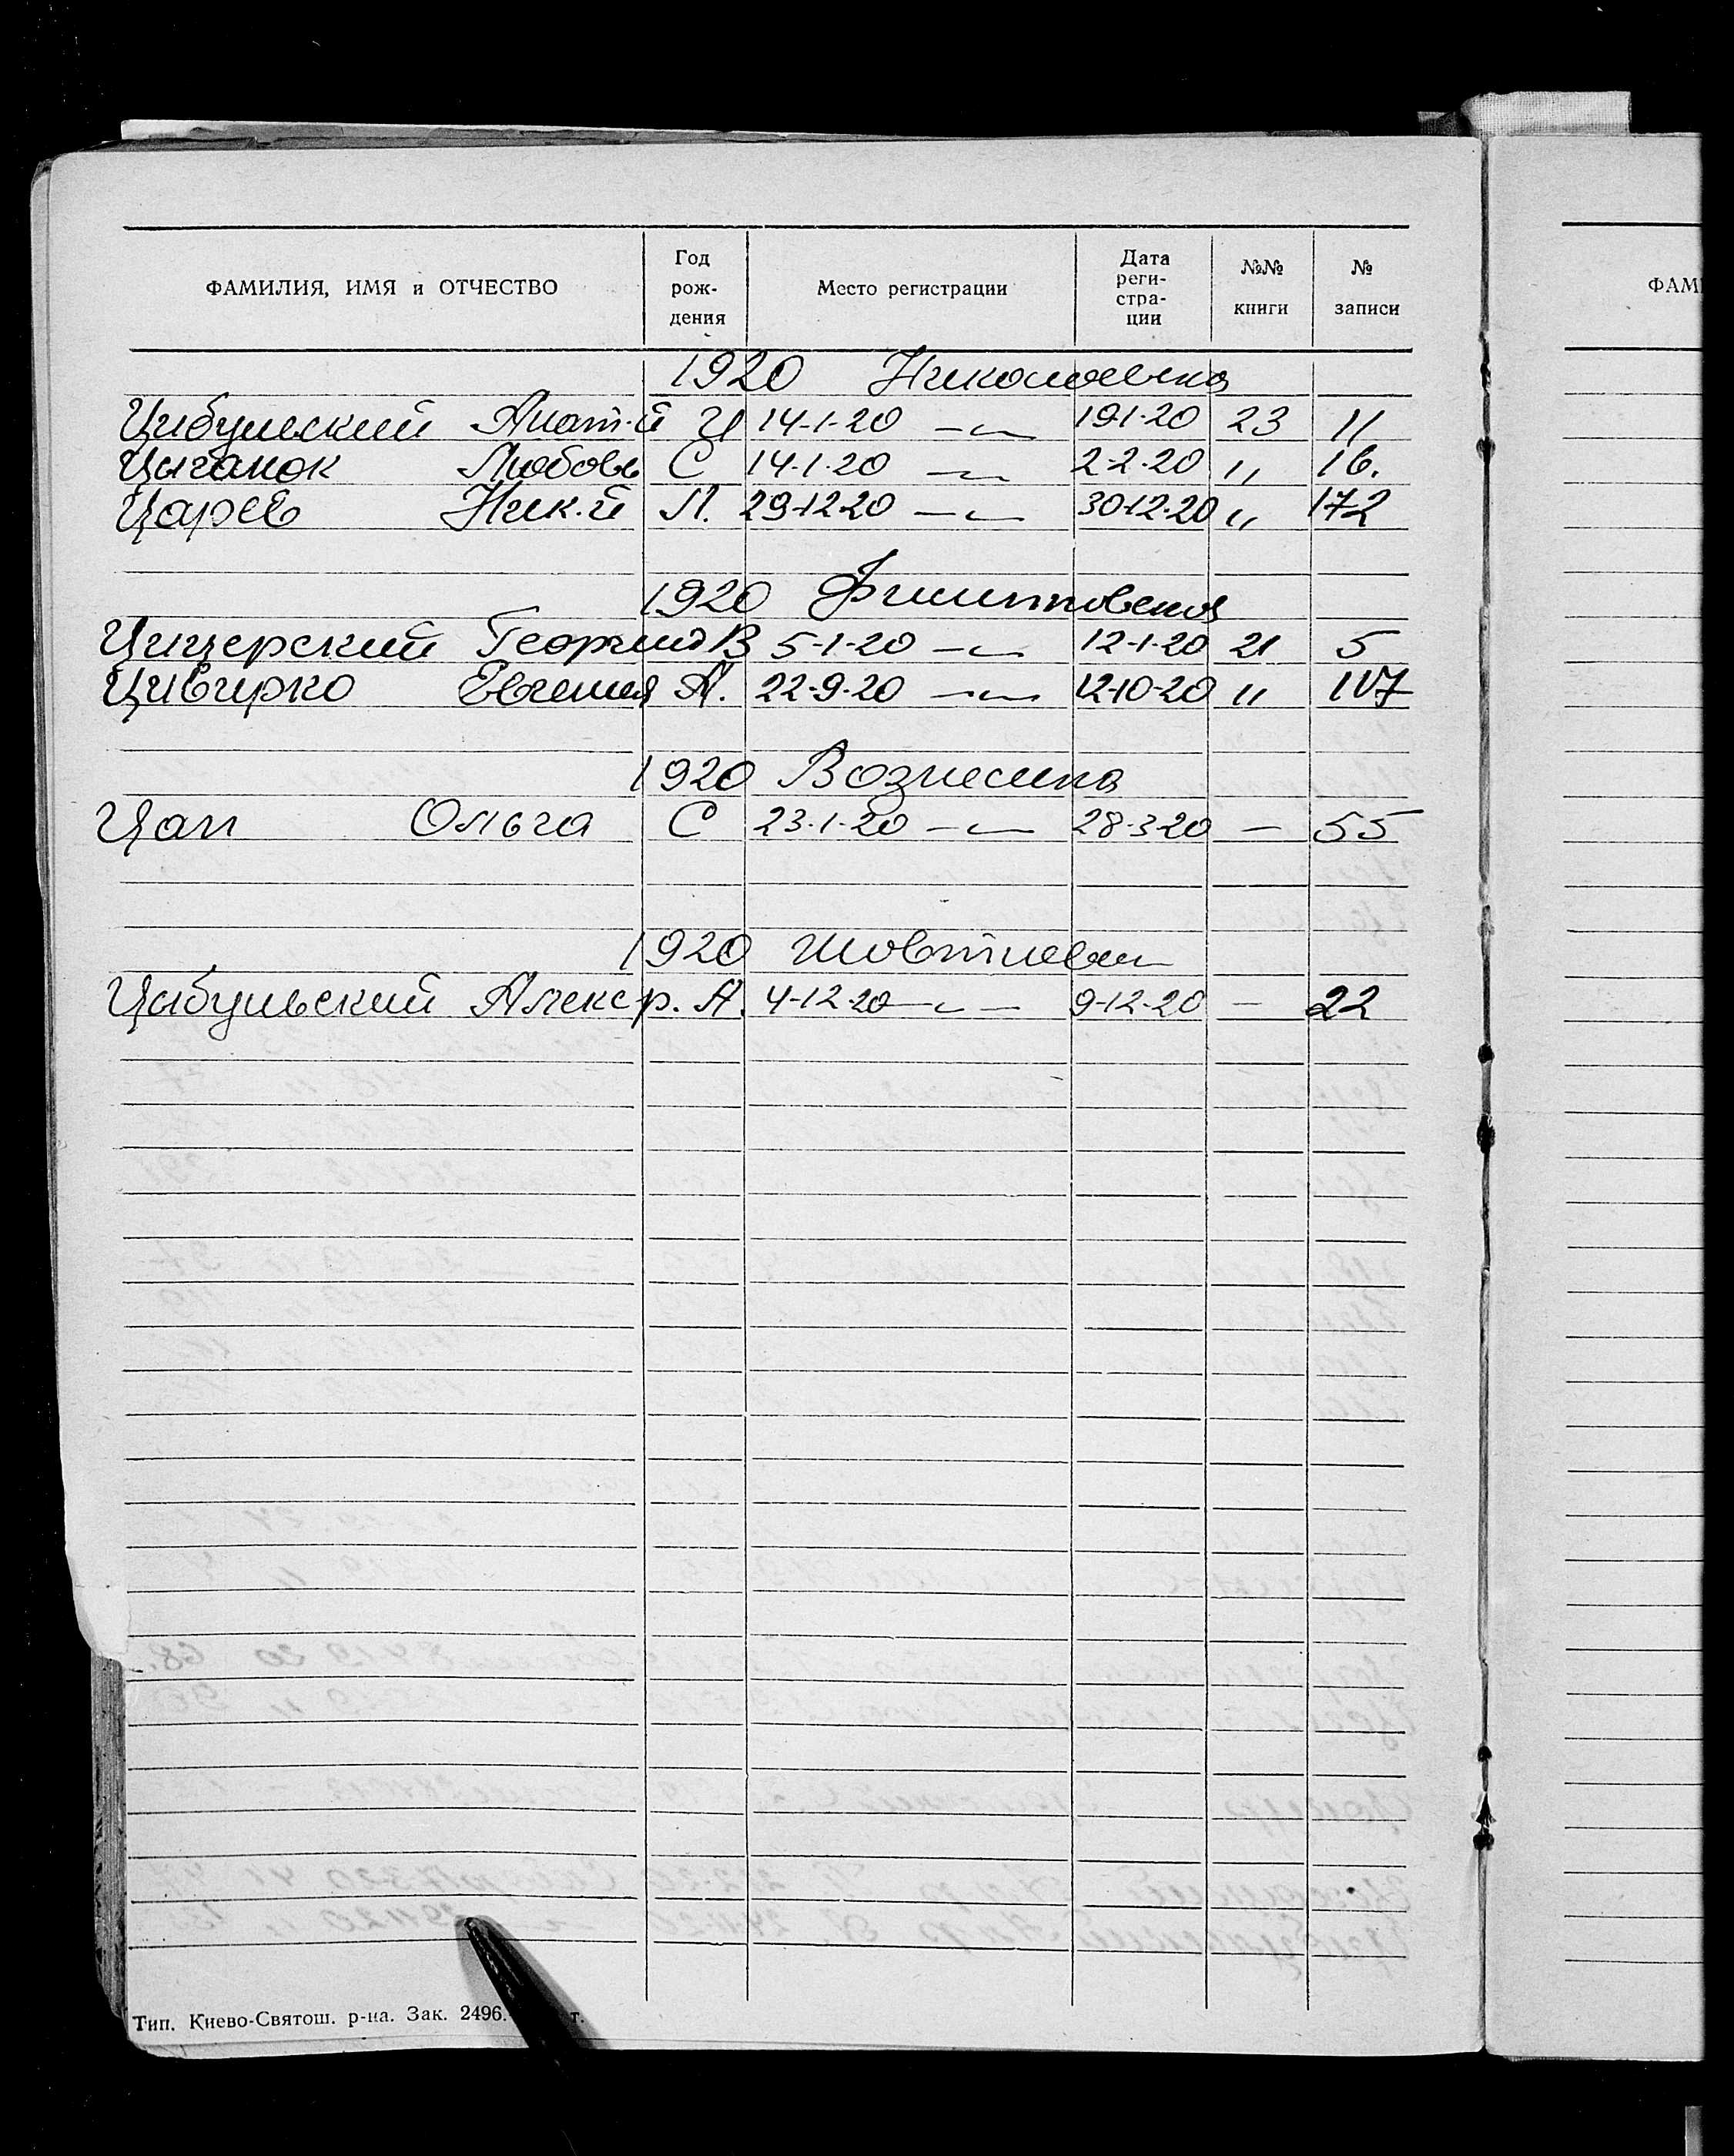 ФАМИЛИЯ, ИМЯ и ОТЧЕСТВО Год рож- дения Место регистрации Дата реги- стра- ции №№ книги № записи
ФАМИ
1920 Николаевка
Цибульский Анат-й И 14-1-20 — " — 19-1-20 23 11
Цыганок Любовь С 14-1-20 — " — 2-2-20 " 16.
Царев Ник-й П. 29-12-20 — " — 30-12-20 " 172
1920 Филипповская
Цицерский Георгий В 5-1-20 — " — 12-1-20 21 5
Цивирко Евгения А. 22-9-20 — " — 12-10-20 "
1920 Вознесенка
Цап Ольга С 23-1-20 — " — 28-3-20 — 55
1920
Цыбульский Алекср. А. 4-12-20 — " — 9-12-20 — 22
Тип. Киево-Святош. р-на. Зак. 2496. т.